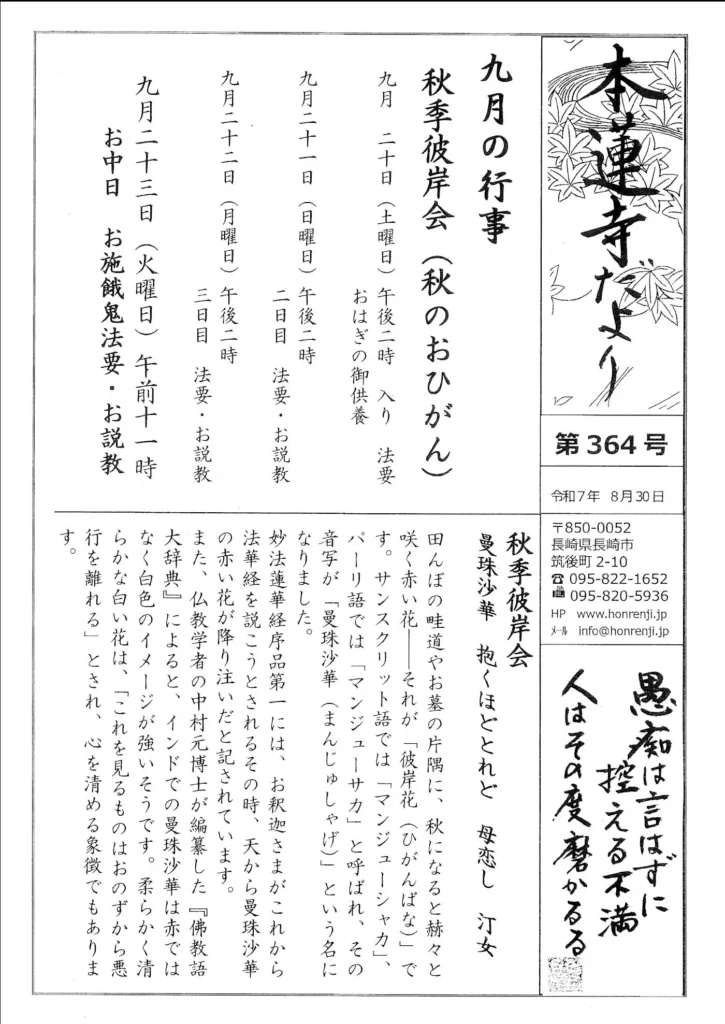 本蓮寺だより
第364号
令和7年 8月30日
〒850-0052
長崎県長崎市
筑後町2-10
☎ 095-822-1652
📠 095-820-5936
HP www.honrenji.jp
ﾒｰﾙ info@honrenji.jp
愚痴は言はずに
控える不満
人はその度磨かるる
九月の行事
秋季彼岸会(秋のおひがん)
九月 二十日(土曜日)午後二時 入り 法要
おはぎの御供養
九月二十一日(日曜日)午後二時
二日目 法要・お説教
九月二十二日(月曜日)午後二時
三日目 法要・お説教
九月二十三日(火曜日)午前十一時
お中日 お施餓鬼法要・お説教
秋季彼岸会
曼珠沙華 抱くほどとれど 母恋し 汀女
田んぼの畦道やお墓の片隅に、秋になると赫々と
咲く赤い花――それが「彼岸花(ひがんばな)」で
す。サンスクリット語では「マンジューシャカ」、
パーリ語では「マンジューサカ」と呼ばれ、その
音写が「曼珠沙華(まんじゅしゃげ)」という名に
なりました。
妙法蓮華経序品第一には、お釈迦さまがこれから
法華経を説こうとされるその時、天から曼珠沙華
の赤い花が降り注いだと記されています。
また、仏教学者の中村元博士が編纂した『佛教語
大辞典』によると、インドでの曼珠沙華は赤では
なく白色のイメージが強いそうです。柔らかく清
らかな白い花は、「これを見るものはおのずから悪
行を離れる」とされ、心を清める象徴でもありま
す。